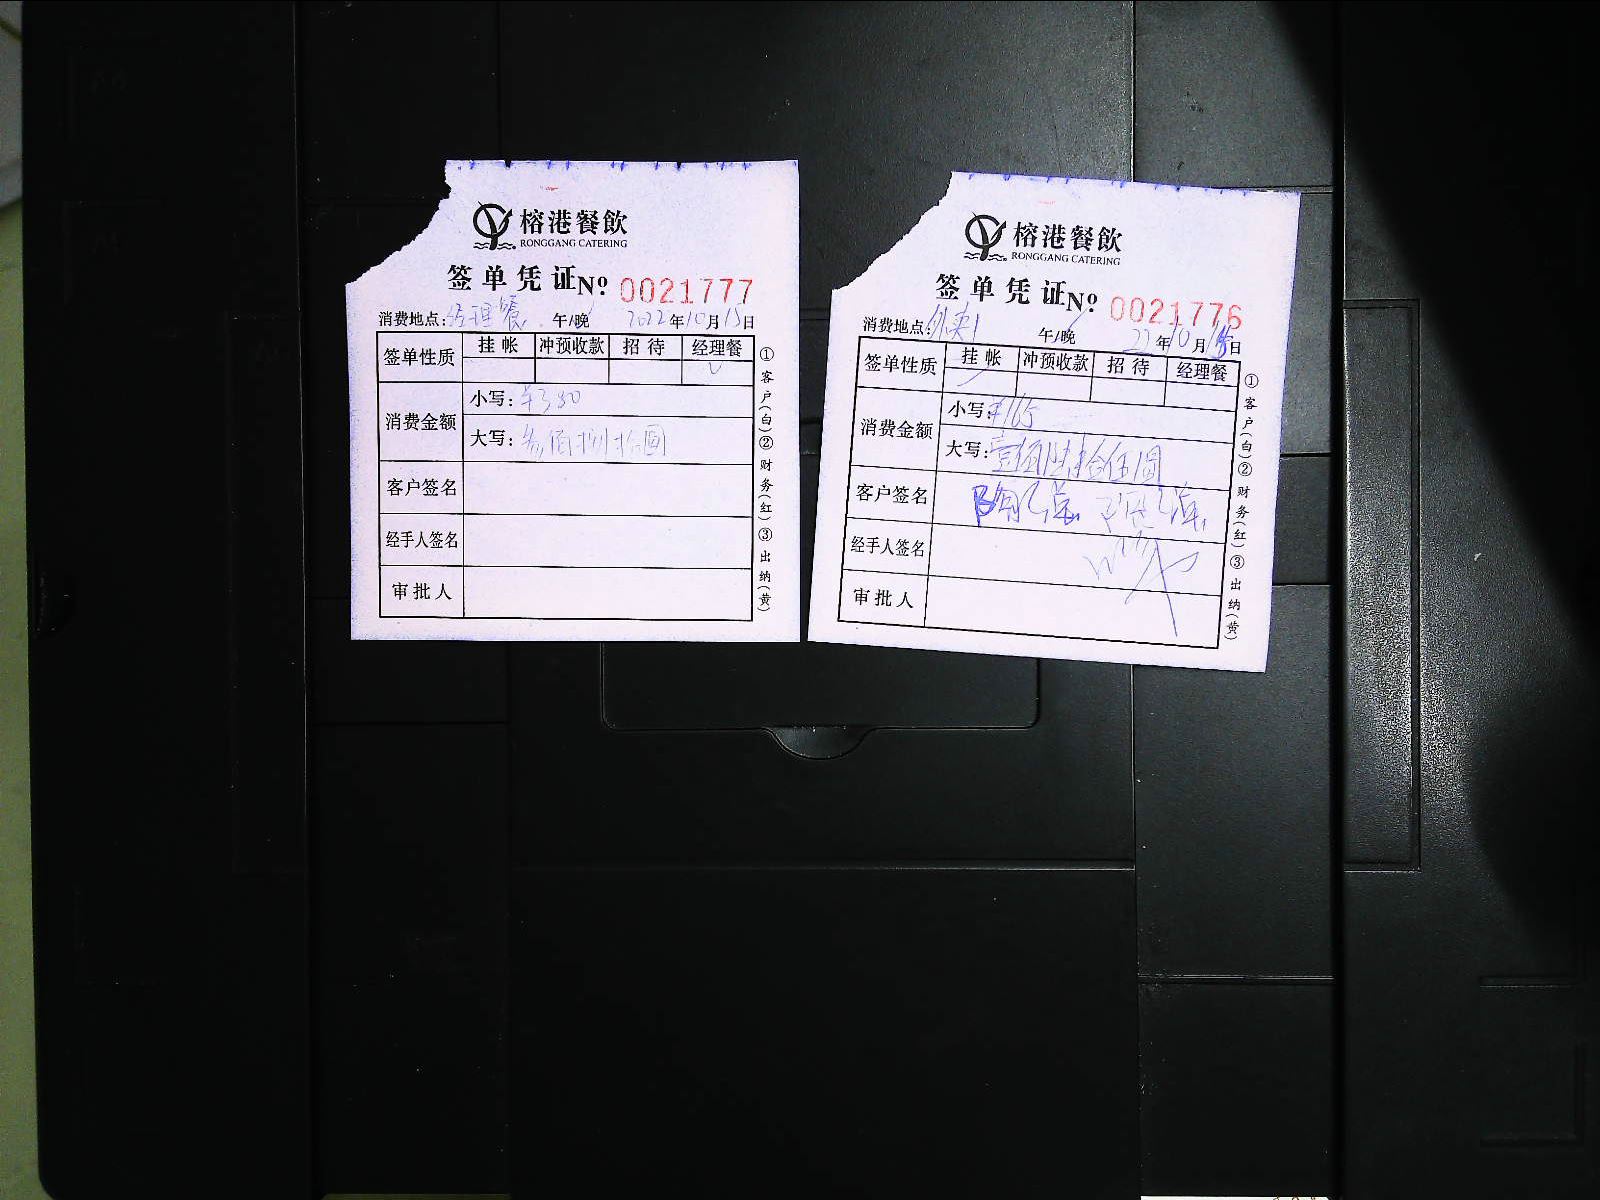 榕港餐飲
RONGGANG CATERING
签单凭证№ 0021777
消费地点:经理餐 午/晚 2022年10月15日
签单性质 挂帐 冲预收款 招待 经理餐
消费金额
小写:¥380
大写:叁佰捌拾圆
客户签名
经手人签名
审批人
①客户(白)②财务(红)③出纳(黄)
榕港餐飲
RONGGANG CATERING
签单凭证№ 0021776
消费地点:外卖1 午/晚 22年10月15日
签单性质 挂帐 冲预收款 招待 经理餐
消费金额
小写:¥165
大写:壹佰陆拾伍圆
客户签名
经手人签名
审批人
①客户(白)②财务(红)③出纳(黄)